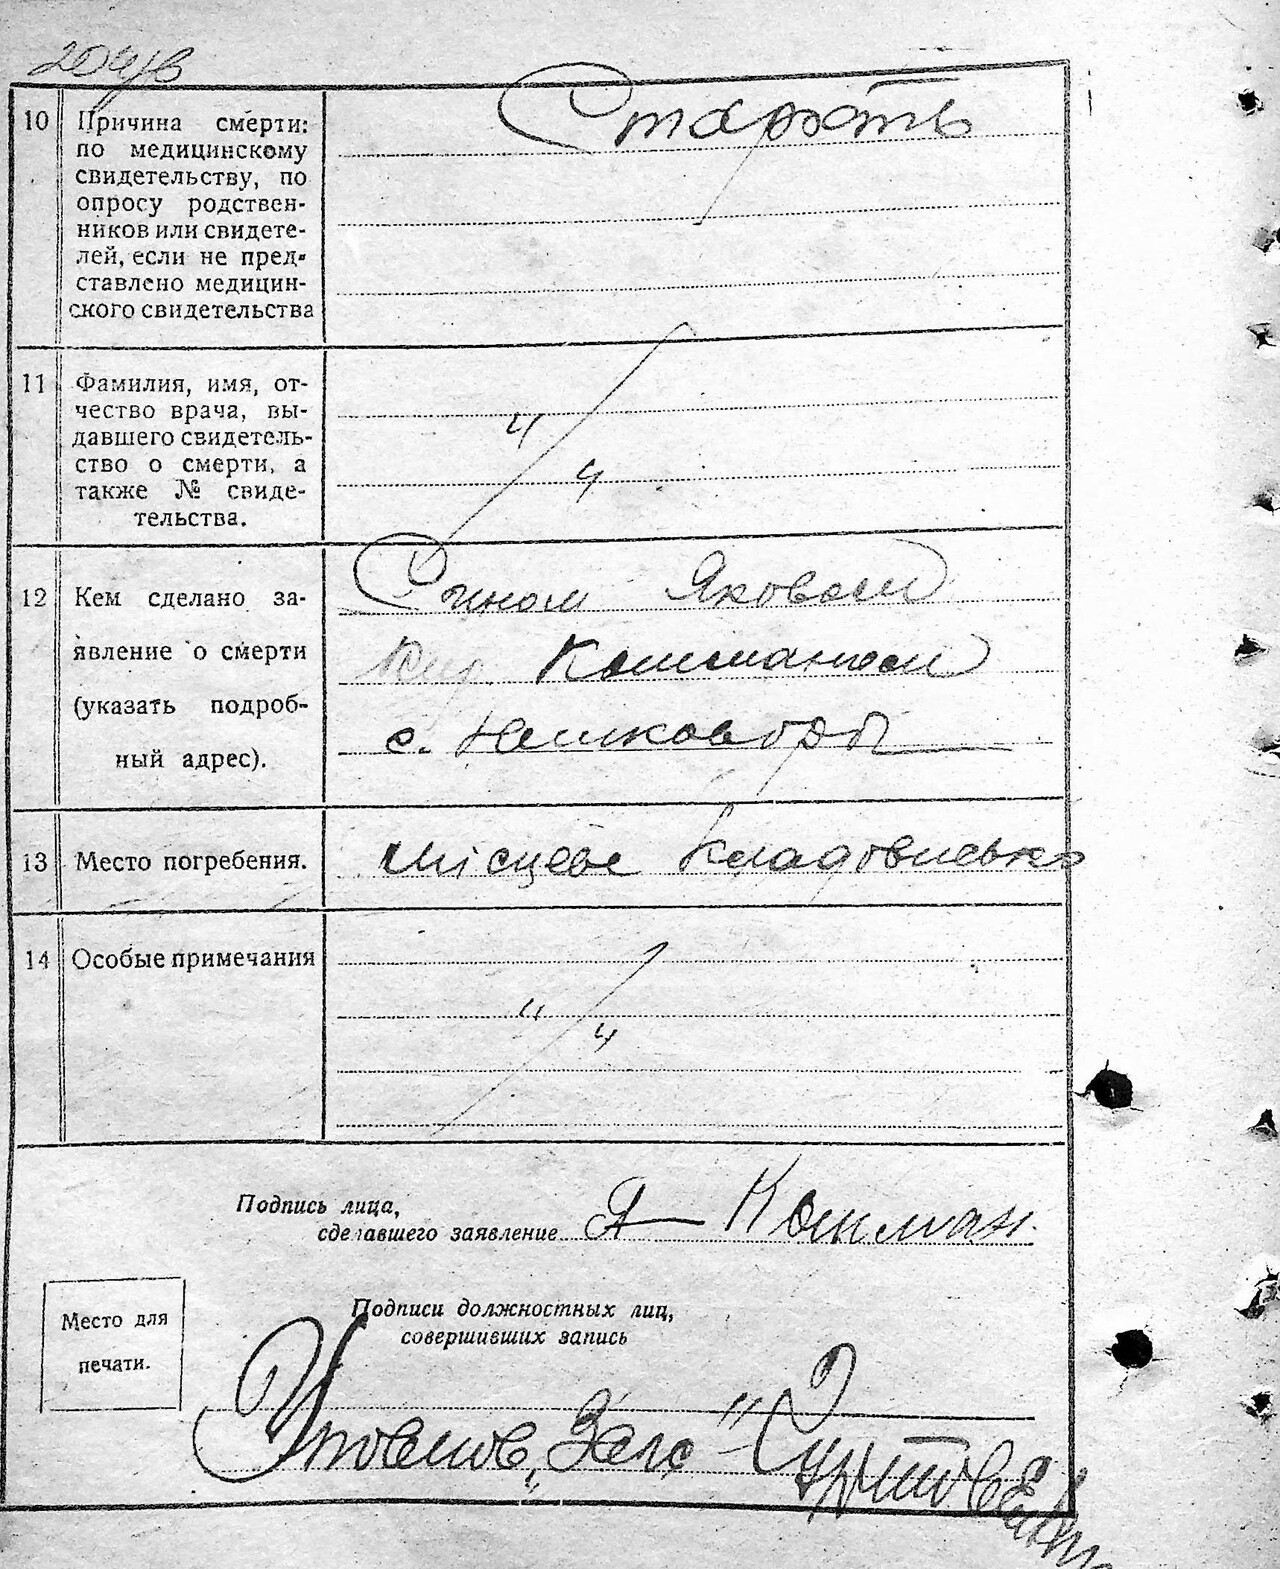 10 Причина смерти:
по медицинскому
свидетельству, по
опросу родствен-
ников или свидете-
лей, если не пред-
ставлено медицин-
ского свидетельства
Старость
11 Фамилия, имя, от-
чество врача, вы-
давшего свидетель-
ство о смерти, а
также № свиде-
тельства.
12 Кем сделано за-
явление о смерти
(указать подроб-
ный адрес).
Сином Яковом
Кошманом
с.
13 Место погребения.
Місцеве Кладовисько
14 Особые примечания
Подпись лица,
сделавшего заявление Я Кошман
Подписи должностных лиц,
совершивших запись
Место для
печати.
Уповнов. "Загс"